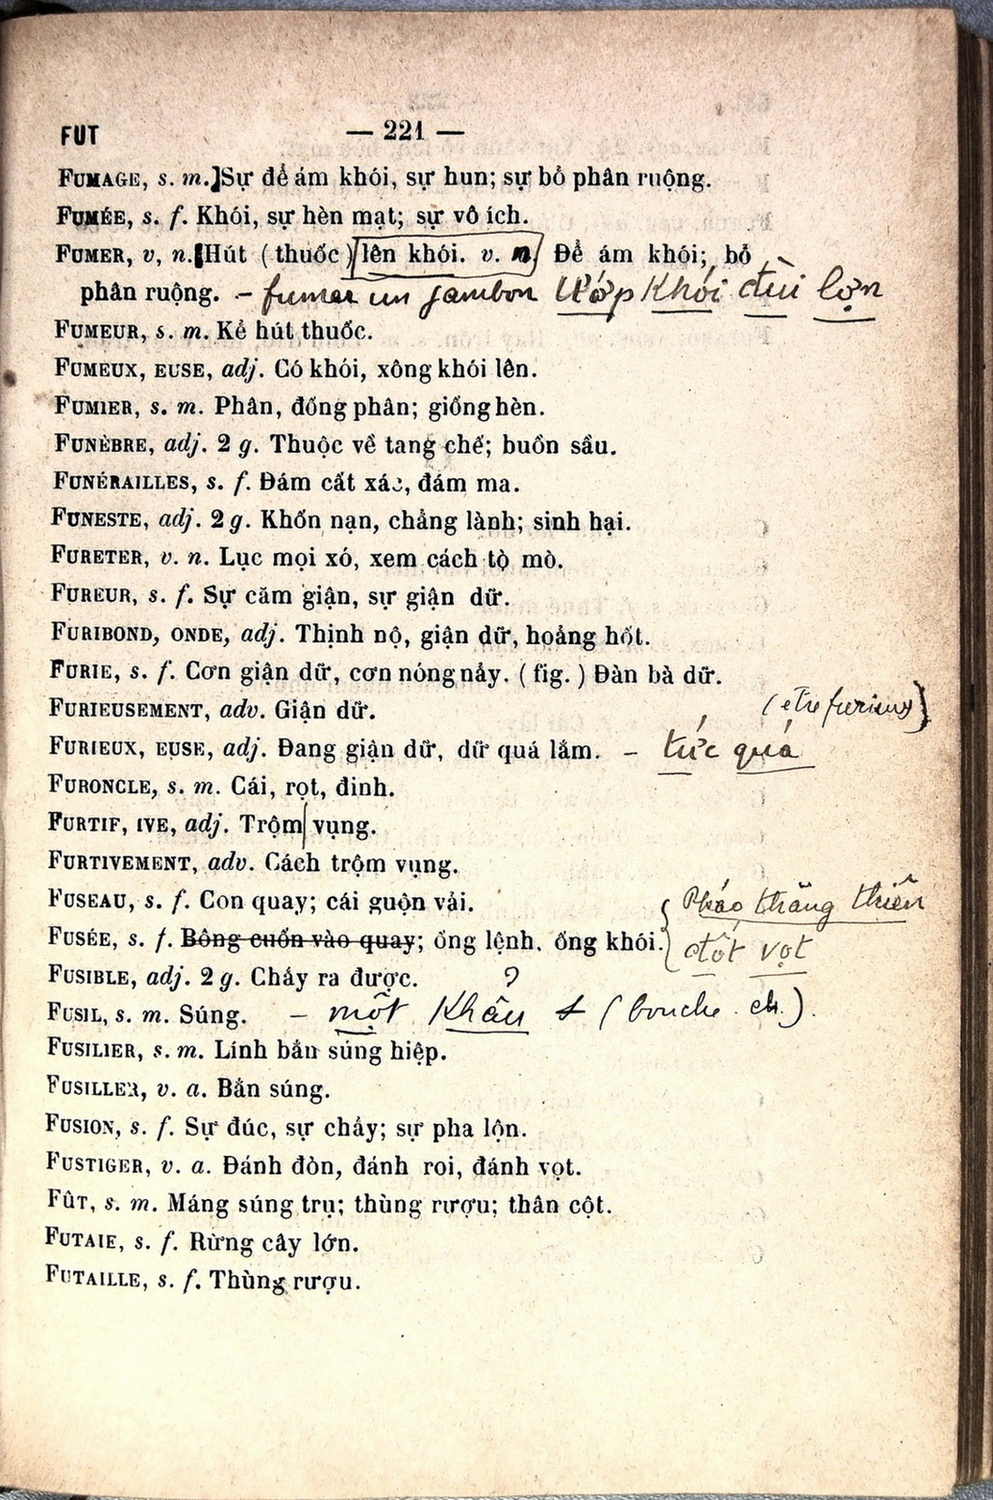 FUT — 221 —
FUMAGE, s. m. Sự để ám khói, sự hun; sự bỏ phân ruộng.
FUMÉE, s. f. Khói, sự hèn mạt; sự vô ích.
FUMER, v, n. Hút (thuốc) lên khói. v. n. Để ám khói; bỏ
phân ruộng. – fumer un jambon Ướp Khói đùi lợn
FUMEUR, s. m. Kẻ hút thuốc.
FUMEUX, EUSE, adj. Có khói, xông khói lên.
FUMIER, s. m. Phân, đống phân; giống hèn.
FUNÈBRE, adj. 2 g. Thuộc về tang chế; buồn sầu.
FUNÉRAILLES, s. f. Đám cất xác, đám ma.
FUNESTE, adj. 2 g. Khốn nạn, chẳng lành; sinh hại.
FURETER, v. n. Lục mọi xó, xem cách tọ mò.
FUREUR, s. f. Sự căm giận, sự giận dữ.
FURIBOND, ONDE, adj. Thịnh nộ, giận dữ, hoảng hốt.
FURIE, s. f. Cơn giận dữ, cơn nóng nảy. (fig.) Đàn bà dữ.
FURIEUSEMENT, adv. Giận dữ. (être furieux)
FURIEUX, EUSE, adj. Đang giận dữ, dữ quá lắm. – tức quá
FURONCLE, s. m. Cái, rọt, đinh.
FURTIF, IVE, adj. Trộm vụng.
FURTIVEMENT, adv. Cách trộm vụng.
FUSEAU, s. f. Con quay; cái guộn vải. Pháo thăng thiên
FUSÉE, s. f. Bông cuốn vào quay; ống lệnh. ống khói. đốt vọt
FUSIBLE, adj. 2 g. Chảy ra được.
FUSIL, s. m. Súng. – một Khẩu s (bouche. ch.).
FUSILIER, s. m. Lính bắn súng hiệp.
FUSILLER, v. a. Bắn súng.
FUSION, s. f. Sự đúc, sự chảy; sự pha lộn.
FUSTIGER, v. a. Đánh đòn, đánh roi, đánh vọt.
FÛT, s. m. Máng súng trụ; thùng rượu; thân cột.
FUTAIE, s. f. Rừng cây lớn.
FUTAILLE, s. f. Thùng rượu.